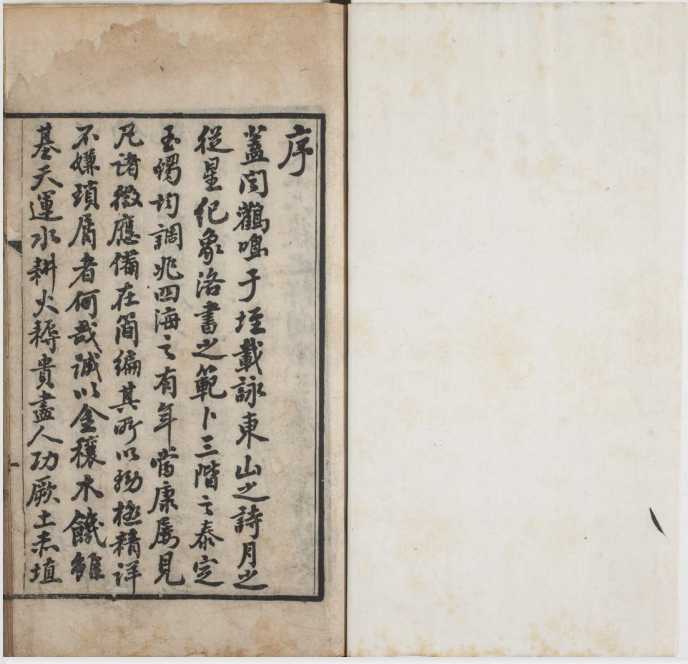 序
蓋聞鸛鳴于垤載詠東山之詩月之
從星紀象洛書之範卜三階之泰定
玉燭均調兆四海之有年當康屢見
凡諸徵應備在簡編其所以極精詳
不嫌瑣屑者何哉誠以金穰木饑雖
基天運水耕火耨貴盡人功厥土赤埴